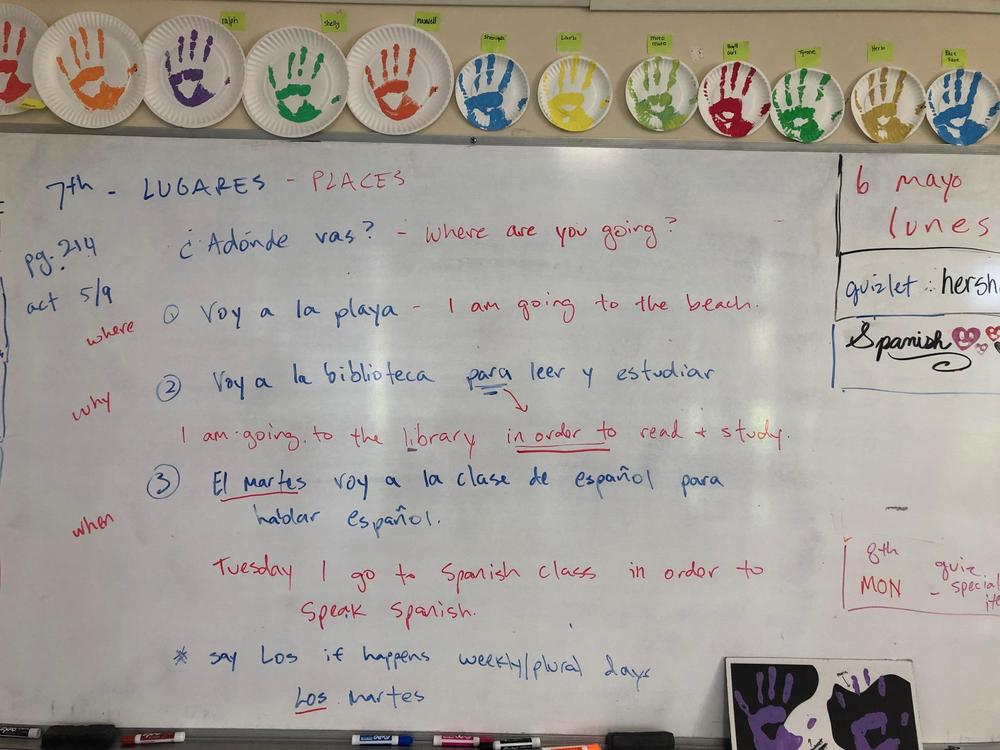 ralph
shelly
maxwell
Shenayah
Larb
moto moto
Tyrone
Herb
7th - LUGARES - PLACES
pg. 214
act 5/9
¿Adónde vas? - Where are you going?
where
① Voy a la playa - I am going to the beach.
why
② Voy a la biblioteca para leer y estudiar
I am going to the library in order to read + study.
when
③ El martes voy a la clase de español para
hablar español.
Tuesday I go to Spanish class in order to
speak Spanish.
* say Los if happens weekly/plural days
Los martes
6 mayo
lunes
quizlet : hersh
Spanish
8th
MON
quiz
- special
ite